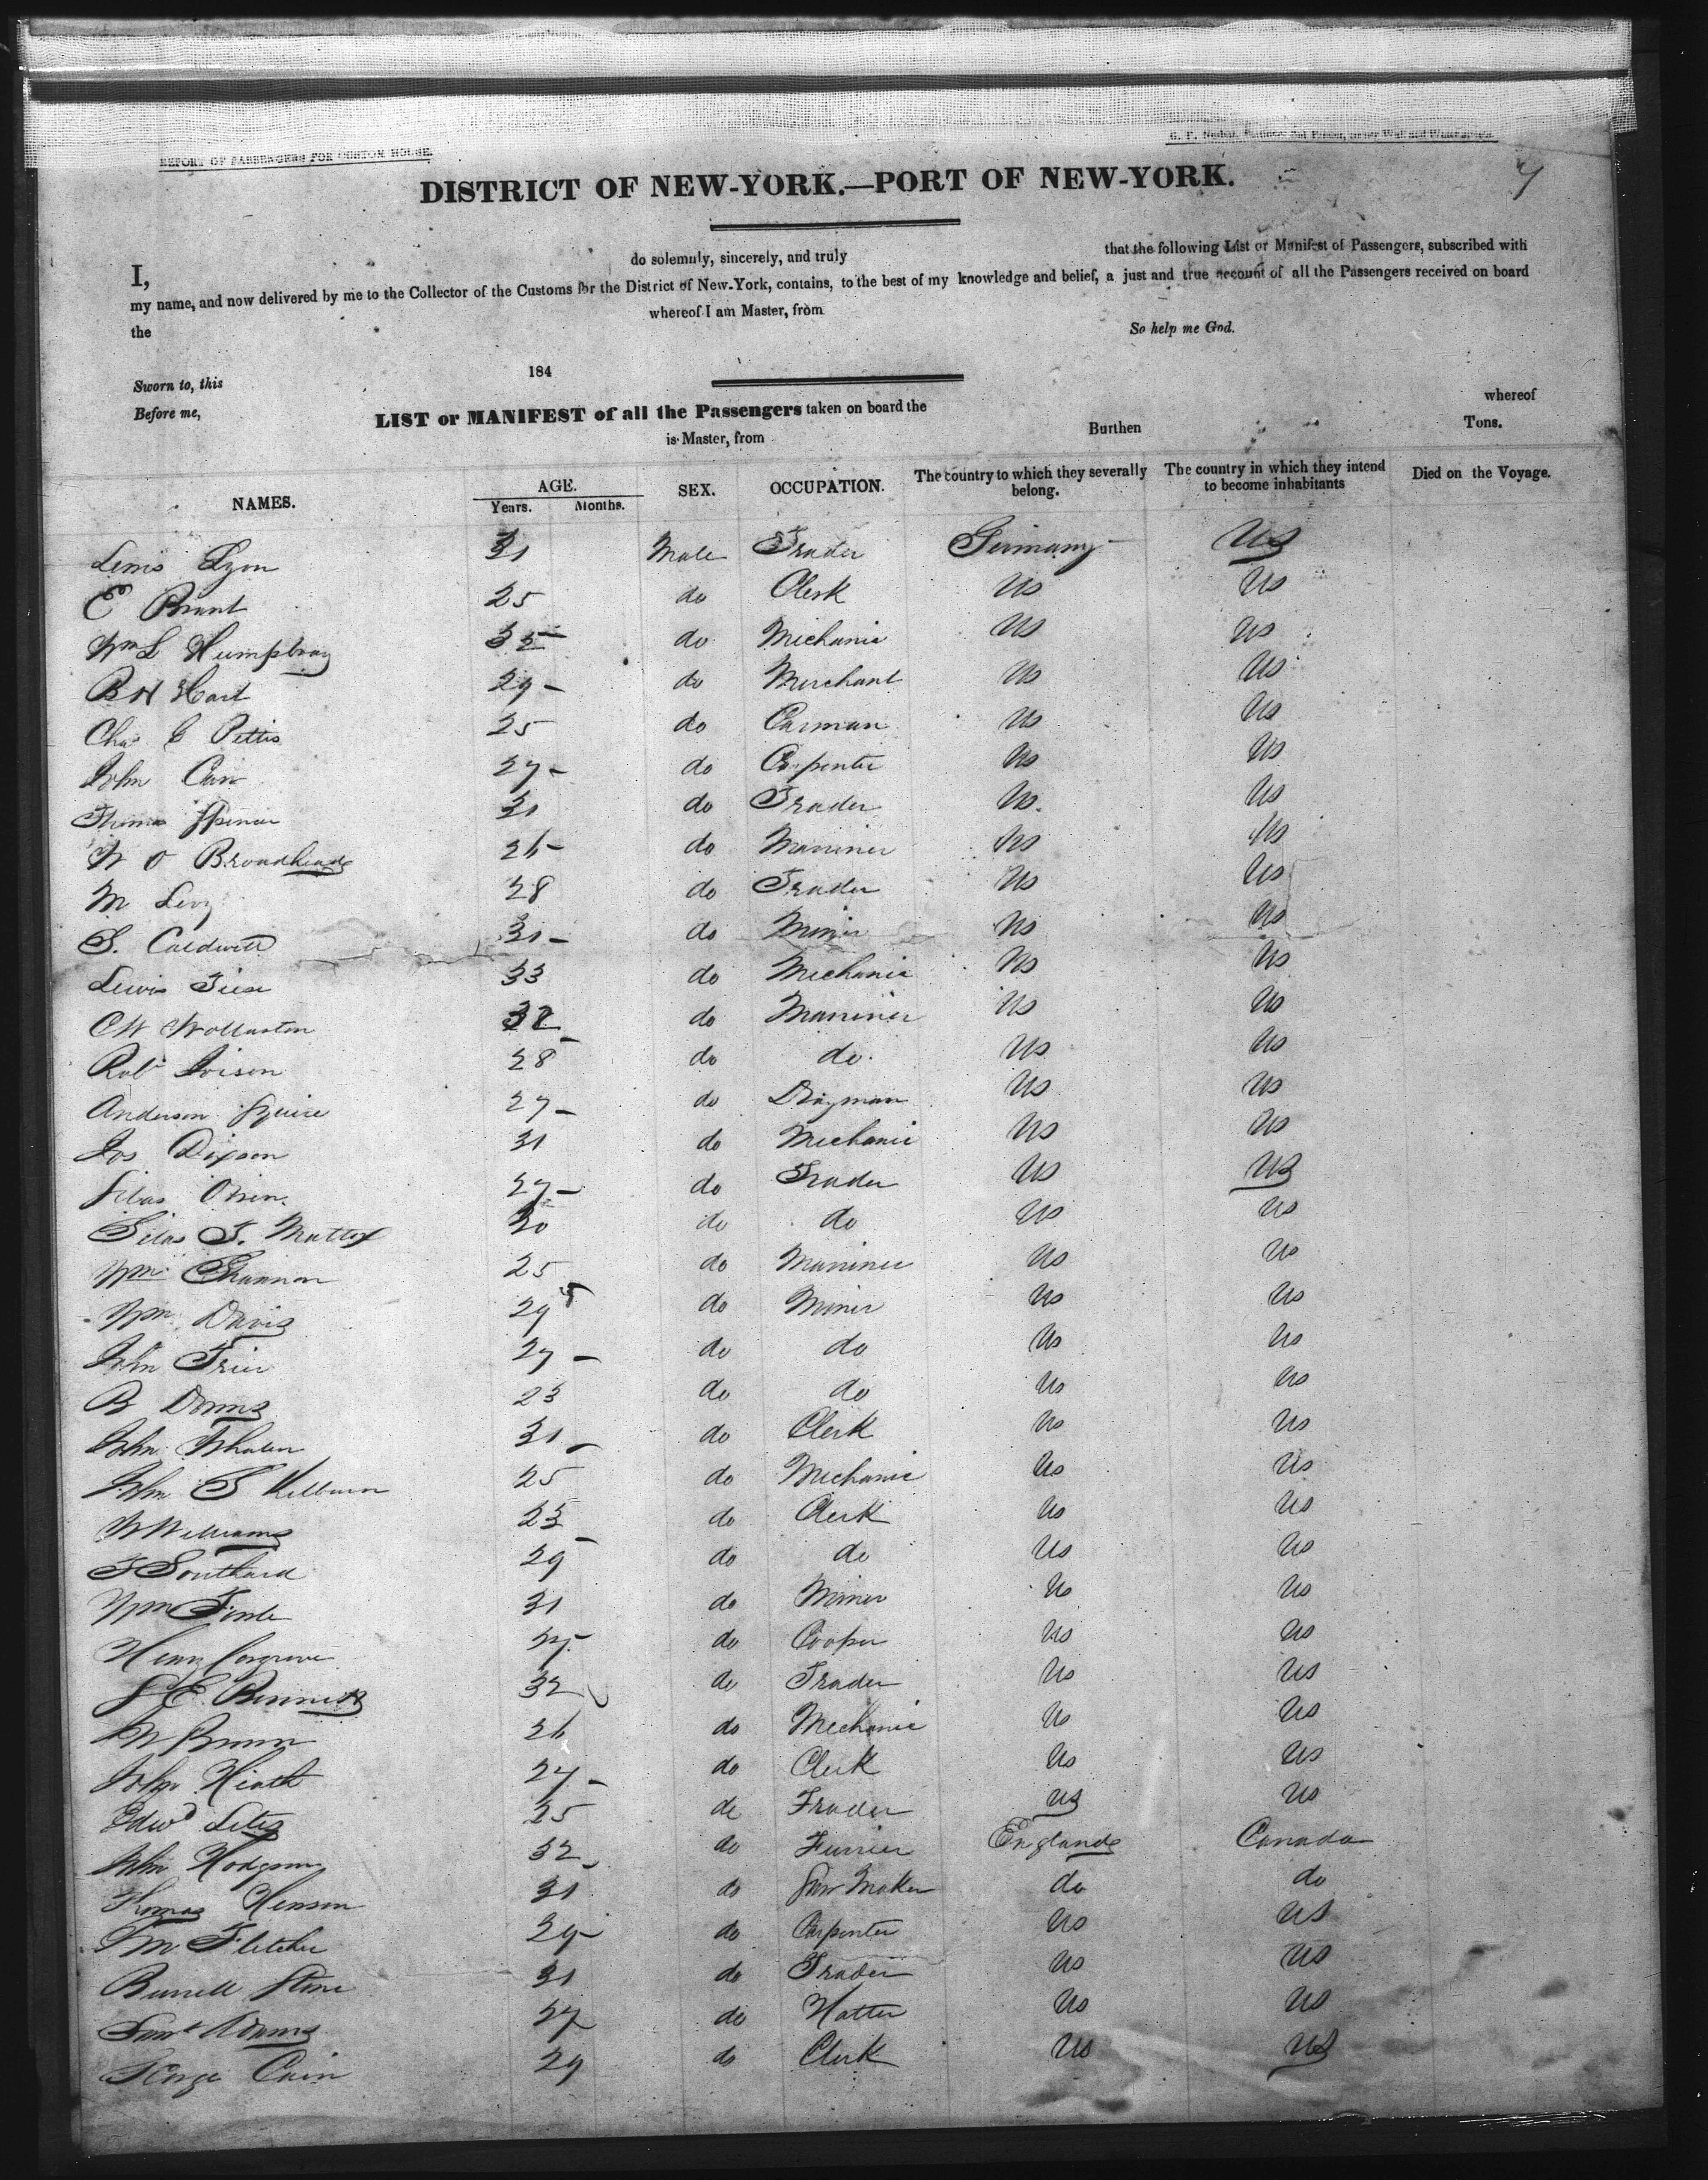 REPORT OF PASSENGERS FOR CUSTOM HOUSE.
DISTRICT OF NEW-YORK.—PORT OF NEW-YORK.
I, do solemnly, sincerely, and truly that the following List or Manifest of Passengers, subscribed with
my name, and now delivered by me to the Collector of the Customs for the District of New-York, contains, to the best of my knowledge and belief, a just and true account of all the Passengers received on board
the whereof I am Master, from So help me God.
Sworn to, this 184
Before me,
LIST or MANIFEST of all the Passengers taken on board the whereof
is Master, from Burthen Tons.
NAMES. AGE. Years. Months. SEX. OCCUPATION. The country to which they severally belong. The country in which they intend to become inhabitants Died on the Voyage.
Lewis Lyon 31 Male Trader Germany US
E Brant 25 do Clerk US US
Wm L Humphray 32 do Mechanic US US
B H Hart 29 do Merchant US US
Chas C Pettis 25 do Carman US US
John Cain 27 do Carpenter US US
Thomas Spencer 31 do Trader US US
W O Broadheads 26 do Marriner US US
M Levy 28 do Trader US US
S. Caldwell 31 do Miner US US
Lewis 33 do Mechanic US US
C W Wollaston 32 do Marriner US US
Robt 28 do do US US
Anderson Squire 27 do Drayman US US
Jos Dixson 31 do Mechanic US US
Silas 27 do Trader US US
Silas T. Mattox 30 do do US US
Wm Shannon 25 do Marriner US US
Wm Davis 29 do Miner US US
John Frier 27 do do US US
B Downs 23 do do US US
John Whalen 31 do Clerk US US
John S Kilburn 25 do Mechanic US US
W Williams 23 do Clerk US US
F Southard 29 do do US US
Wm 31 do Miner US US
Henry Cosgrove 27 do Cooper US US
S E Bennett 32 do Trader US US
W Brown 26 do Mechanic US US
John Heath 27 do Clerk US US
Edwd 25 do Trader US US
John Hodgson 32 do Furrier England Canada
Thomas Henson 31 do Saw Maker do do
Wm Fletcher 29 do Carpenter US US
Burrell Stone 31 do Trader US US
Saml Adams 27 do Hatter US US
George Cain 29 do Clerk US US